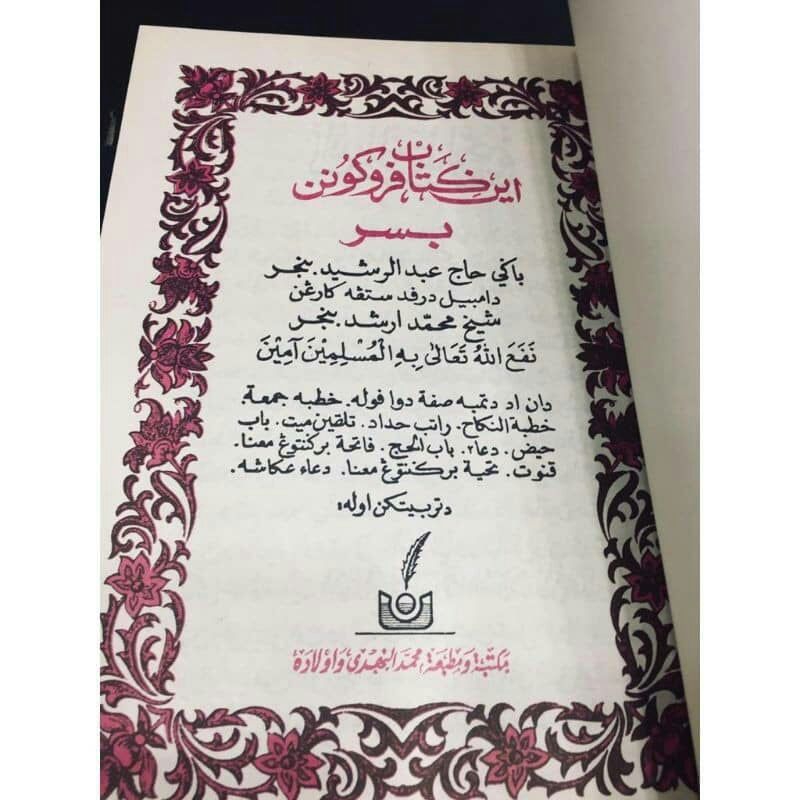 اين كتاب فروكونن
بسر
باݢي حاج عبد الرشيد. بنجر
دامبيل درفد ستڤه كارڠن
شيخ محمّد ارشد. بنجر
نَفَعَ اللهُ تَعَالىٰ بِهِ الْمُسْلِمِيْنَ آمِيْنَ
دان اد دتمبه صفة دوا فوله. خطبه جمعة.
خطبة النكاح. راتب حداد. تلقين ميت. باب
حيض. دعاء٢. باب الحج. فاتحة بركنتوڠ معنا.
قنوت. تحية بركنتوڠ معنا. دعاء عكاشه.
دتربيتكن اوله:
مكتبة ومطبعة محمد النهدى واولاده